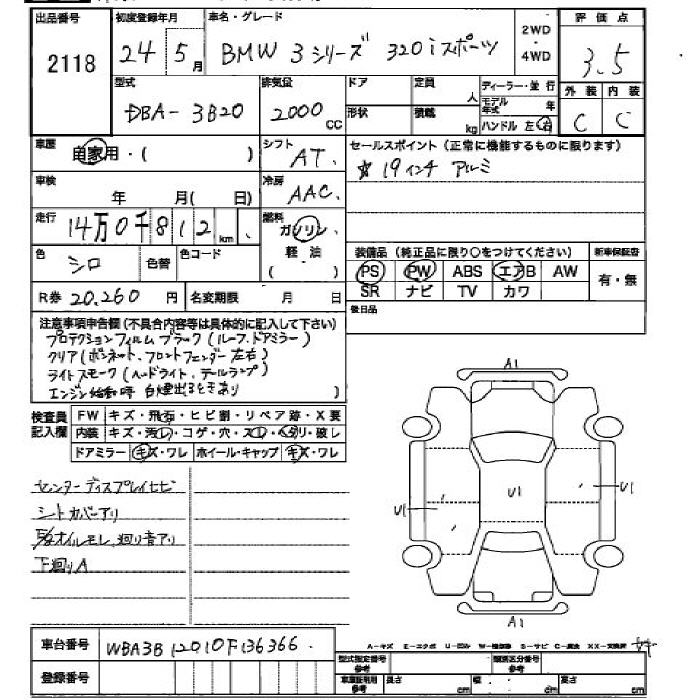 出品番号 初度登録年月 車名・グレード 2WD 評価点
2118 24 5月 BMW 3シリーズ 320iスポーツ ・4WD 3.5
型式 排気量 ドア 定員 人 ディーラー・並行 外装 内装
DBA-3B20 2000cc 形状 積載 kg モデル年式 年 C C
ハンドル 左・右
車歴 自家用・( ) シフト AT. セールスポイント(正常に機能するものに限ります)
☆19インチ アルミ
車検 年 月( 日) 冷房 AAC.
走行 14万0千812km 燃料 ガソリン
軽油
( )
色 シロ 色替 色コード
装備品(純正品に限り○をつけてください) 新車保証書
PS PW ABS エアB AW 有・無
SR ナビ TV カワ
R券 20,260円 名変期限 月 日
後日品
注意事項申告欄(不具合内容等は具体的に記入して下さい)
プロテクションフィルムブラック(ルーフ.ドアミラー)
クリア(ボンネット、フロントフェンダー左右)
ライトスモーク(ヘッドライト、テールランプ)
エンジン始動時 白煙出るときあり
検査員記入欄
FW キズ・飛石・ヒビ割・リペア跡・X要
内装 キズ・汚レ・コゲ・穴・スレ・ヘタリ・破し
ドアミラー キズ・ワレ ホイール・キャップ キズ・ワレ
センターディスプレイヒビ
シートカバーアリ
オイルモレ、廻り音アリ
下廻りA
A1
U1
U1
U1
A1
車台番号 WBA3B12010F136366
登録番号
A-キズ E-エクボ U-凹み S-サビ C-腐食
型式指定番号参考 類別区分番号参考
車庫証明用参考 長さ cm 幅 cm 高さ cm